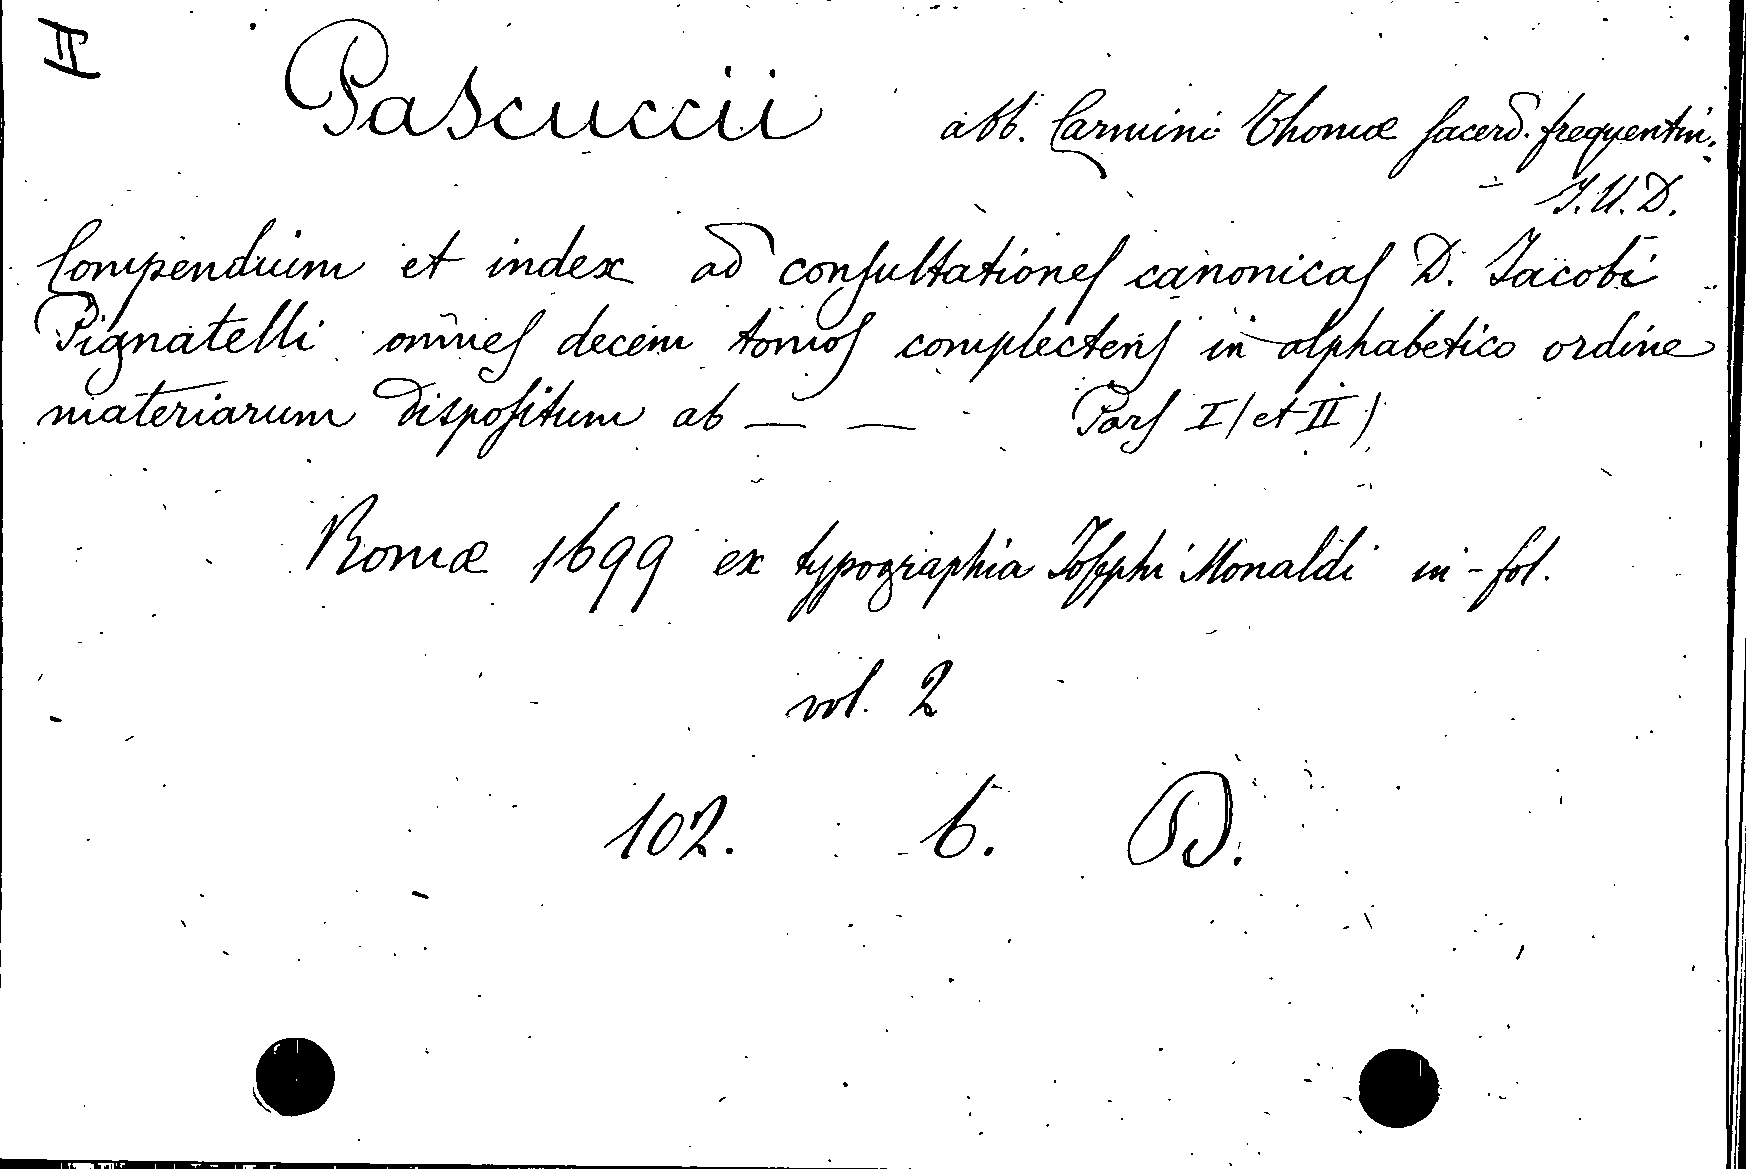 II
Pascuccii abb. Carmini Thomæ sacerd. frequentin.
I.U.D.
Compendium et index ad consultationes canonicas D. Iacobi
Pignatelli omnes decem tomos complectens in alphabetico ordine
materiarum dispositum ab — — Pars I (et II)
Romæ 1699 ex typographia Iosephi Monaldi in-fol.
vol. 2
102. 6. D.